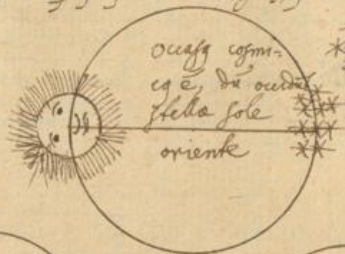 Occasq cosmi-
cq ē, dū occidūt
stellæ sole
oriente